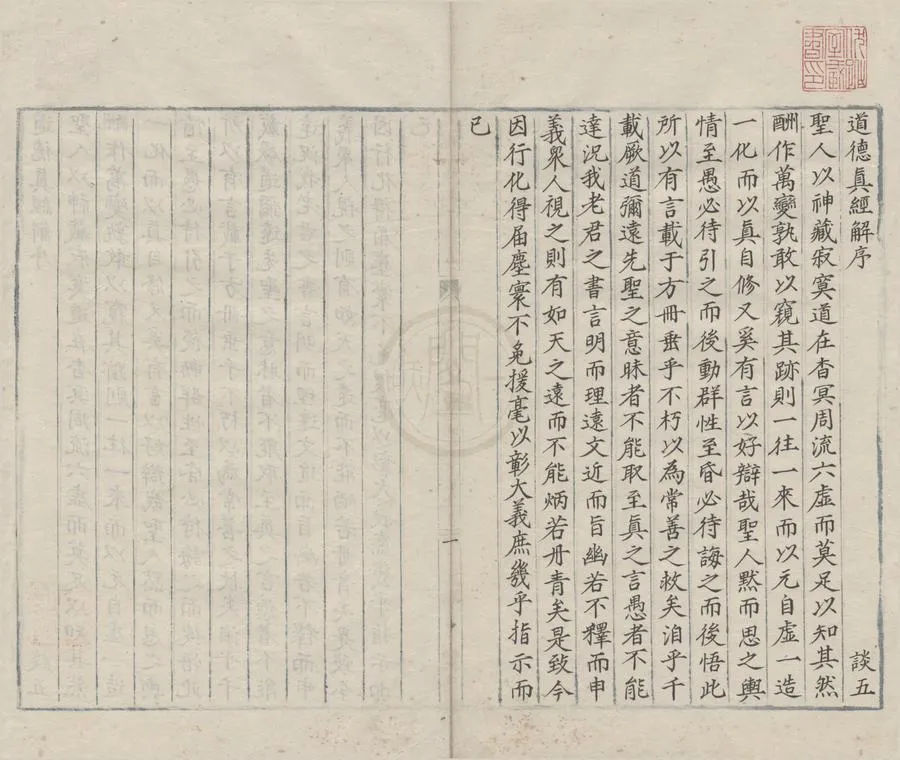 道德眞經解序　談五
聖人以神藏寂寞道在杳冥周流六虛而莫足以知其然
酬作萬變孰敢以窺其跡則一往一來而以元自虛一造
一化而以真自修又奚有言以好辯哉聖人黙而思之輿
情至愚必待引之而後動群性至昏必待誨之而後悟此
所以有言載于方冊垂乎不朽以為常善之救矣洎乎千
載厥道彌遠先聖之意昧者不能取至眞之言愚者不能
達況我老君之書言明而理遠文近而旨幽若不釋而申
義衆人視之則有如天之遠而不能炳若丹青矣是致今
因行化得届塵寰不免援毫以彰大義庶幾乎指示而
已
一